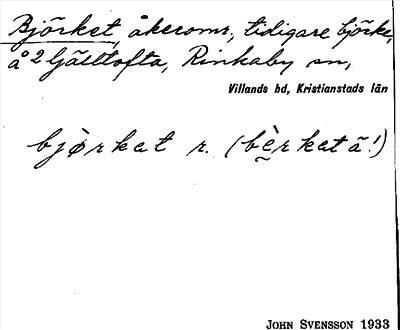 Björket, åkeromr, tidigare björke,
å 2 Gälltofta, Rinkaby sn,
Villands hd, Kristianstads län
bjørkat r. (bèrkatā!)
JOHN SVENSSON 1933